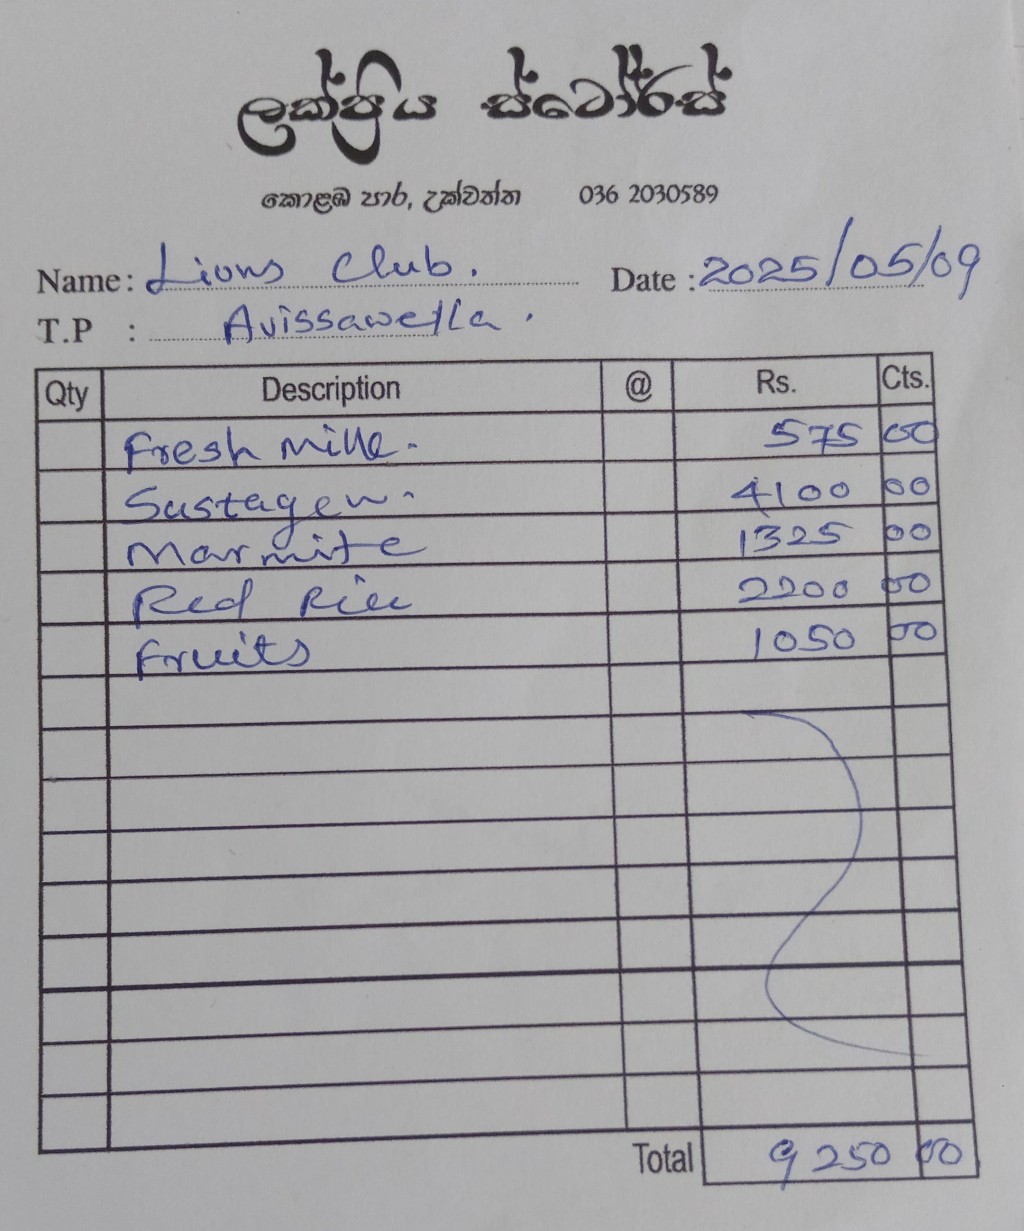 ලක්ප්‍රිය ස්ටෝර්ස්
කොළඹ පාර, උක්වත්ත 036 2030589
Name: Lions Club. Date : 2025/05/09
T.P : Avissawella.
Qty Description @ Rs. Cts.
Fresh milk. 575 00
Sustagen. 4100 00
Marmite 1325 00
Red Rice 2200 00
Fruits 1050 00
Total 9250 00